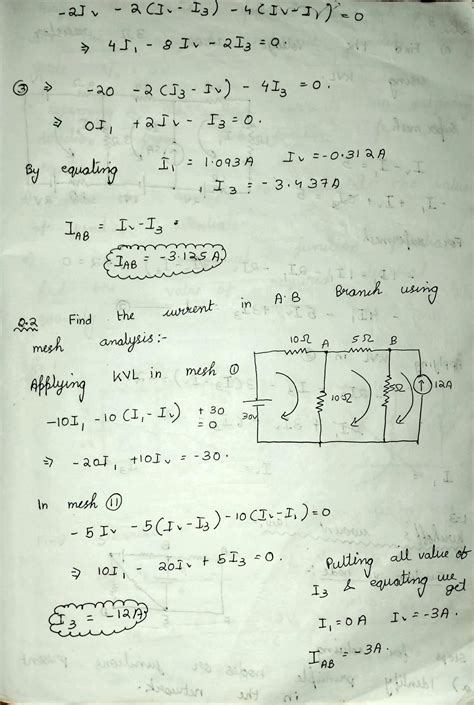 -2I₂ - 2(I₂-I₃) - 4(I₂-I₁) = 0
⇒ 4I₁ - 8I₂ - 2I₃ = 0.
③ ⇒ -20 - 2(I₃ - I₂) - 4I₃ = 0.
⇒ 0I₁ + 2I₂ - I₃ = 0.
By equating I₁ = 1.093A I₂ = -0.312A
, I₃ = -3.437A
I_AB = I₂ - I₃.
I_AB = -3.125A
Q.2 Find the current in A·B Branch using
mesh analysis:-
Applying KVL in mesh ①
-10I₁ - 10(I₁ - I₂) + 30 = 0
⇒ -20I₁ + 10I₂ = -30.
10Ω A 5Ω B
30v 10Ω 5Ω 12A
In mesh ⑪
-5I₂ - 5(I₂-I₃) - 10(I₂-I₁) = 0
⇒ 10I₁ - 20I₂ + 5I₃ = 0.
I₃ = -12A
Putting all value of
I₃ & equating we
get
I₁ = 0A I₂ = -3A.
I_AB = -3A.